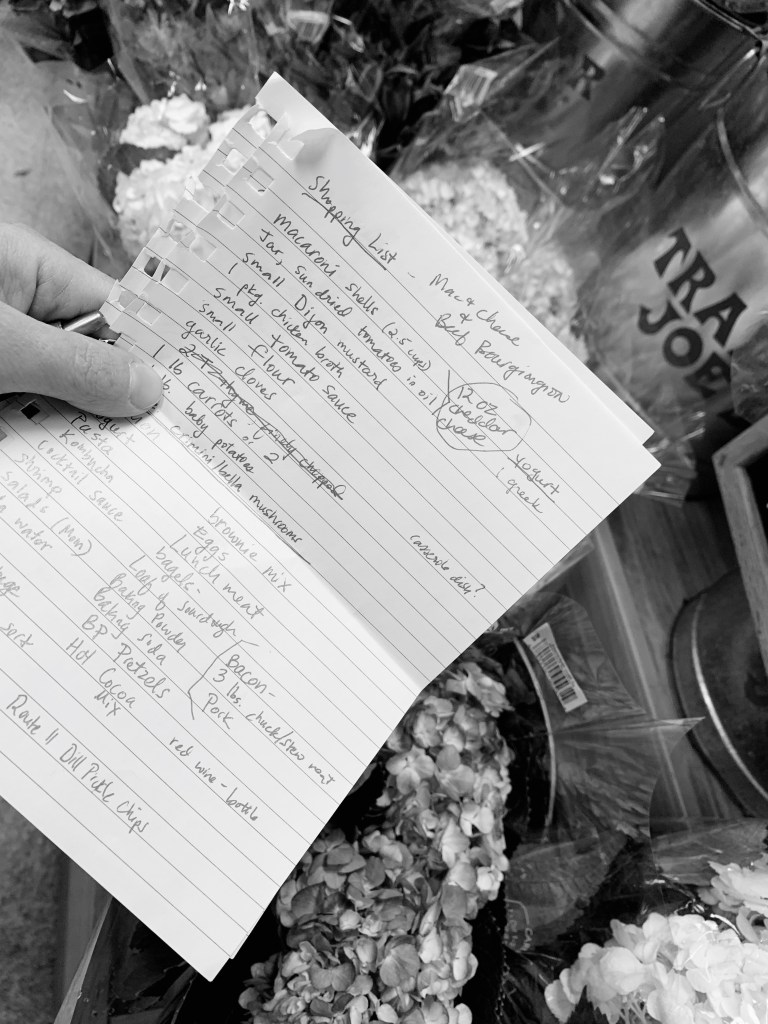 Shopping List - Mac & Cheese
&
Beef Bourgingnon
macaroni shells (2.5 cups)
Jar, sun dried tomatoes in oil
small Dijon mustard
1 pkg chicken broth
small tomato sauce
small flour
garlic cloves
1 lb carrots or 2
lb. baby potatoes
crimini/bella mushrooms
12 oz
cheddar
cheese
Yogurt
1 greek
casserole dish?
Pasta
Kombucha
cocktail sauce
shrimp
salads (Mom)
water
sort
brownie mix
Eggs
Lunch meat
bagels-
Loaf of sourdough
Baking Powder
baking soda
BP Pretzels
Hot Cocoa
Mix
Bacon-
3 lbs. chuck/stew meat
Pork
red wine - bottle
Route 11 Dill Pickle Chips
R
TRA
JOE